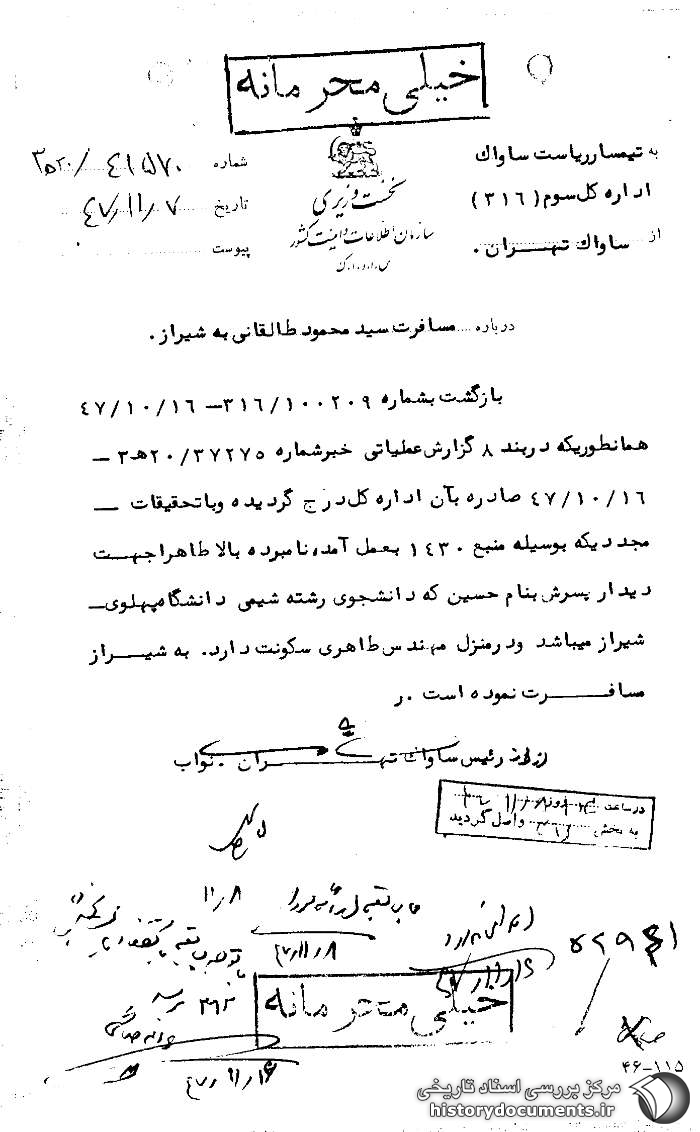 خیلی محرمانه
به تیمسار ریاست ساواک
اداره کل سوم (٣١٦)
از ساواک تهران .
نخست وزیری
سازمان اطلاعات و امنیت کشور
س.ا.و.ا.ک
شماره ٤١٥٧٠/٣٥٢٠
تاریخ ٤٧/١١/٧
پیوست
درباره ... مسافرت سید محمود طالقانی به شیراز .
بازگشت بشماره ٣١٦/١٠٠٢٠٩ – ٤٧/١٠/١٦
همانطوریکه دربند ٨ گزارش عملیاتی خبر شماره ٢٠/٣٧٢٧٥ هـ ٣ –
٤٧/١٠/١٦ صادره بآن اداره کل درج گردیده و با تحقیقات –
مجددیکه بوسیله منبع ١٤٣٠ بعمل آمده، نامبرده بالا ظاهرا جهت
دیدار پسرش بنام حسین که دانشجوی رشته شیمی دانشگاه پهلوی –
شیراز میباشد ودر منزل مهندس طاهری سکونت دارد. به شیراز
مسافرت نموده است .ر
رئیس ساواک تهران . نواب
در ساعت روز
به بخش ٣١٦ واصل گردید
١١/٨
٤٧/١١/٨
خیلی محرمانه
٤٧/١١/١٦
٤٦-١١٥
مرکز بررسی اسناد تاریخی
historydocuments.ir